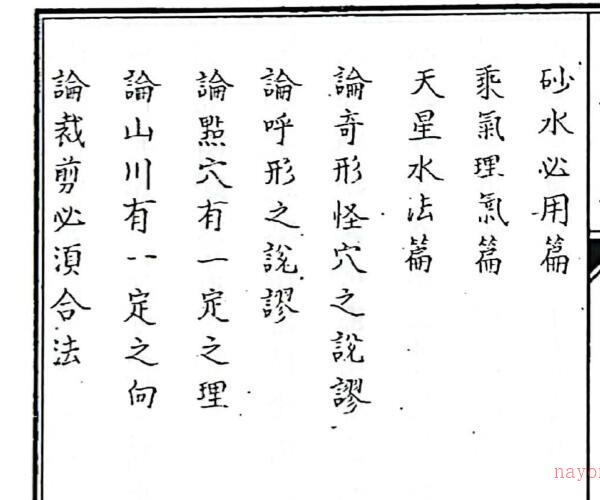 砂水必用篇
乘氣理氣篇
天星水法篇
論奇形怪穴之說謬
論呼形之說謬
論點穴有一定之理
論山川有一定之向
論裁剪必須合法
nayo